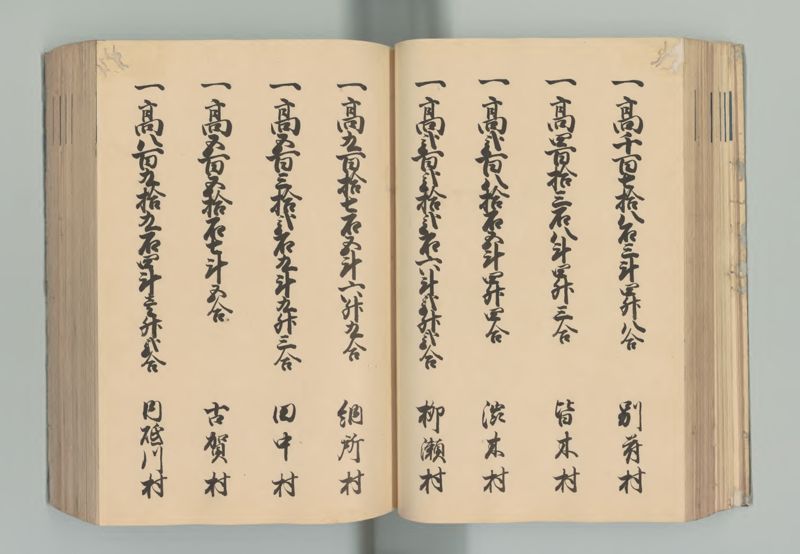 一高千百七拾八石三斗四升八合 別府村
一高四百拾三石八斗四升三合 皆木村
一高弐百八拾石五斗四升四合 渋木村
一高弐百弐拾弐石六斗弐升弐合 柳瀬村
一高九百拾七石五斗六升九合 納所村
一高五百三拾弐石九斗九升三合 田中村
一高五百五拾石七斗五合 古賀村
一高八百九拾九石四斗壱升弐合 砥川村